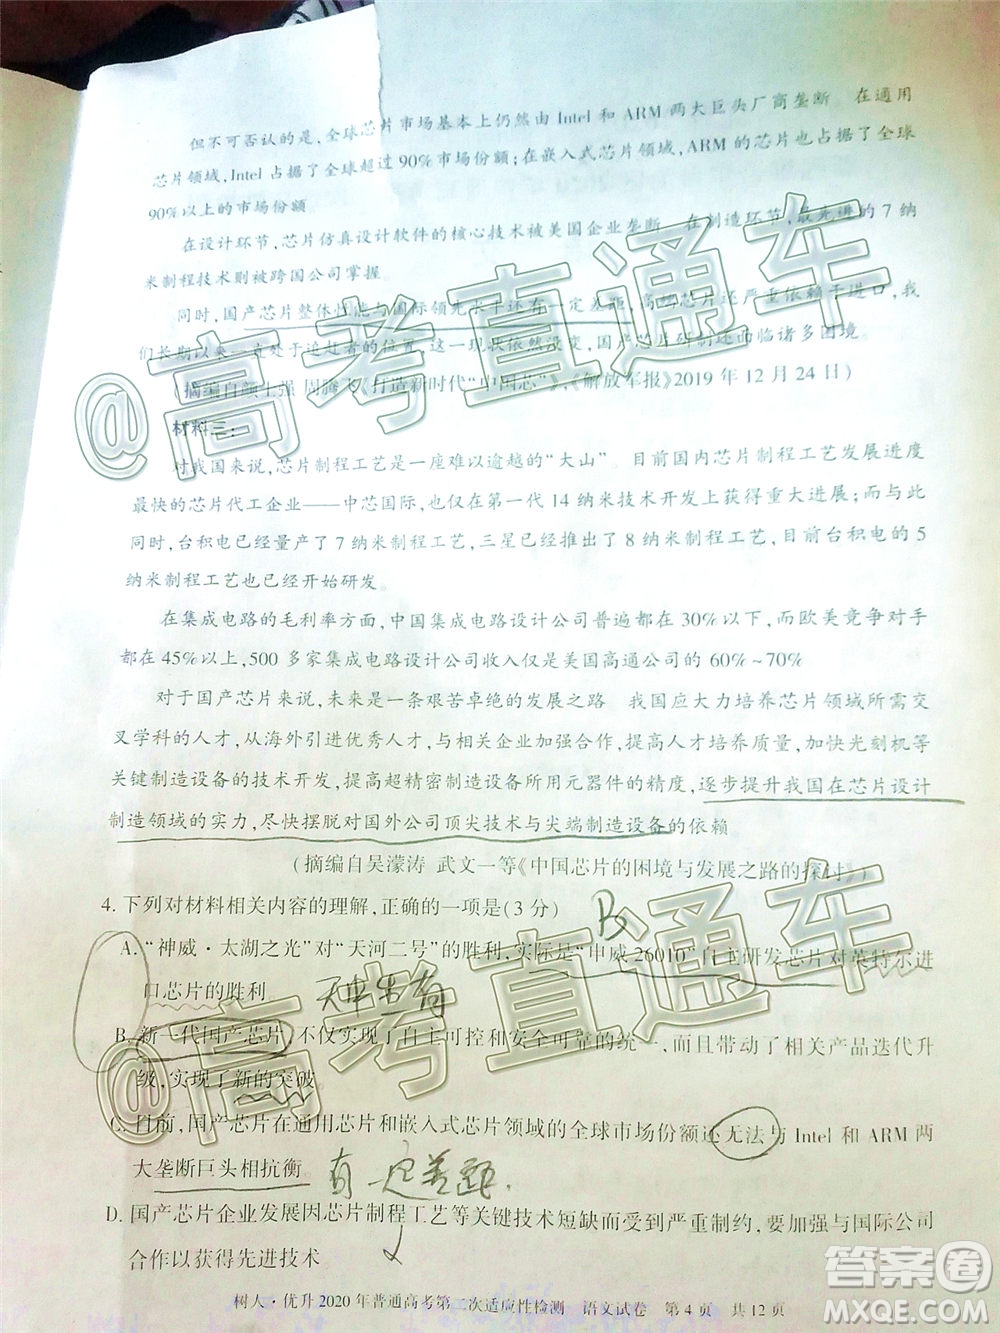 但不可否认的是,全球芯片市场基本上仍然由 Intel 和 ARM 两大巨头厂商垄断 在通用
芯片领域,Intel 占据了全球超过 90%市场份额;在嵌入式芯片领域,ARM 的芯片也占据了全球
90%以上的市场份额
在设计环节,芯片仿真设计软件的核心技术被美国企业垄断 在制造环节,最先进的 7 纳
米制程技术则被跨国公司掌握。
同时,国产芯片整体性能与国际领先水平还有一定差距,高端芯片还严重依赖于进口,我
们长期以来一直处于追赶者的位置 这一现状依然没变,国产芯片研制还面临诸多困境。
(摘编自颜士强 周腾飞《打造新时代“中国芯”》,《解放军报》2019 年 12 月 24 日)
材料三:
对我国来说,芯片制程工艺是一座难以逾越的“大山”。目前国内芯片制程工艺发展进度
最快的芯片代工企业——中芯国际,也仅在第一代 14 纳米技术开发上获得重大进展;而与此
同时,台积电已经量产了 7 纳米制程工艺,三星已经推出了 8 纳米制程工艺,目前台积电的 5
纳米制程工艺也已经开始研发。
在集成电路的毛利率方面,中国集成电路设计公司普遍都在 30%以下,而欧美竞争对手
都在 45%以上,500 多家集成电路设计公司收入仅是美国高通公司的 60%~70%
对于国产芯片来说,未来是一条艰苦卓绝的发展之路 我国应大力培养芯片领域所需交
叉学科的人才,从海外引进优秀人才,与相关企业加强合作,提高人才培养质量,加快光刻机等
关键制造设备的技术开发,提高超精密制造设备所用元器件的精度,逐步提升我国在芯片设计
制造领域的实力,尽快摆脱对国外公司顶尖技术与尖端制造设备的依赖
(摘编自吴濛涛 武文一等《中国芯片的困境与发展之路的探讨》)
4. 下列对材料相关内容的理解,正确的一项是(3 分) B
A. “神威·太湖之光”对“天河二号”的胜利,实际是“申威 26010”自主研发芯片对英特尔进
口芯片的胜利
B. 新一代国产芯片,不仅实现了自主可控和安全可靠的统一,而且带动了相关产品迭代升
级,实现了新的突破。
C. 目前,国产芯片在通用芯片和嵌入式芯片领域的全球市场份额还无法与 Intel 和 ARM 两
大垄断巨头相抗衡 有一定差距.
D. 国产芯片企业发展因芯片制程工艺等关键技术短缺而受到严重制约,要加强与国际公司
合作以获得先进技术
树人·优升 2020 年普通高考第二次适应性检测 语文试卷 第 4 页 共 12 页
@高考直通车
@高考直通车
答案圈
MXQE.COM